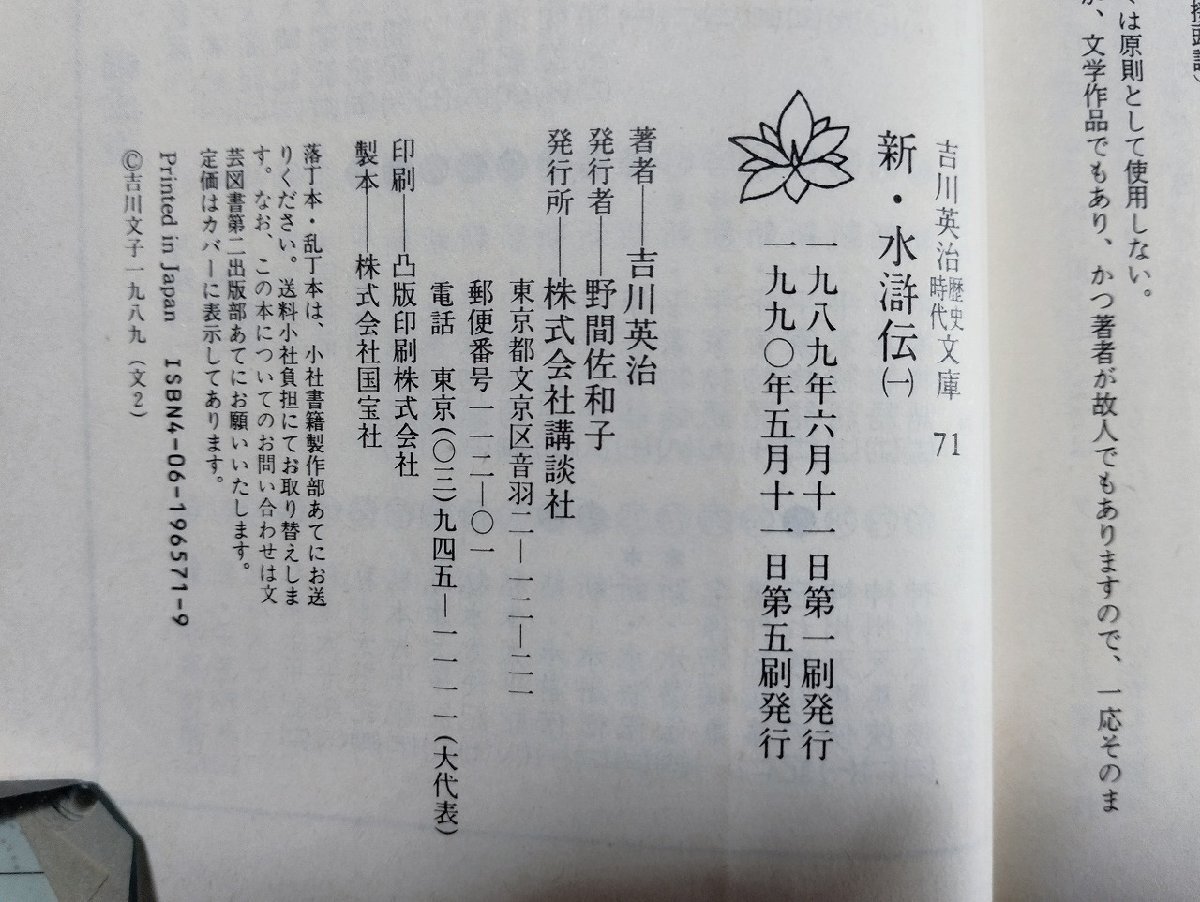 くは原則として使用しない。
、文学作品でもあり、かつ著者が故人でもありますので、一応そのま
吉川英治歴史時代文庫 71
新・水滸伝㈠
一九八九年六月十一日第一刷発行
一九九〇年五月十一日第五刷発行
著者――吉川英治
発行者――野間佐和子
発行所――株式会社講談社
東京都文京区音羽二―一二―二一
郵便番号一一二―〇一
電話 東京(〇三)九四五―一一一一(大代表)
印刷――凸版印刷株式会社
製本――株式会社国宝社
落丁本・乱丁本は、小社書籍製作部あてにお送
りください。送料小社負担にてお取り替えしま
す。なお、この本についてのお問い合わせは文
芸図書第二出版部あてにお願いいたします。
定価はカバーに表示してあります。
Printed in Japan ISBN4-06-196571-9
©吉川文子一九八九(文2)